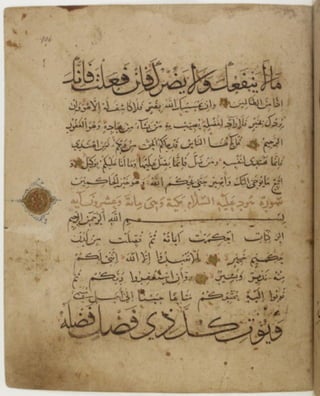 ما لا ينفعك ولا يضرك فان فعلت فانك
اذا من الظالمين وان يمسسك الله بضر فلا كاشف له الا هو وان
يردك بخير فلا راد لفضله يصيب به من يشاء من عباده وهو الغفور
الرحيم قل يا ايها الناس قد جاءكم الحق من ربكم فمن اهتدى
فانما يهتدي لنفسه ومن ضل فانما يضل عليها وما انا عليكم بوكيل و
اتبع ما يوحى اليك واصبر حتى يحكم الله وهو خير الحاكمين
سورة هود عليه السلام مكية وهي مائة وعشرون آية
بسم الله الرحمن الرحيم
الر كتاب احكمت آياته ثم فصلت من لدن
حكيم خبير الا تعبدوا الا الله انني لكم
منه نذير وبشير وان استغفروا ربكم ثم
توبوا اليه يمتعكم متاعا حسنا الى اجل مسمى
ويؤت كل ذي فضل فضله